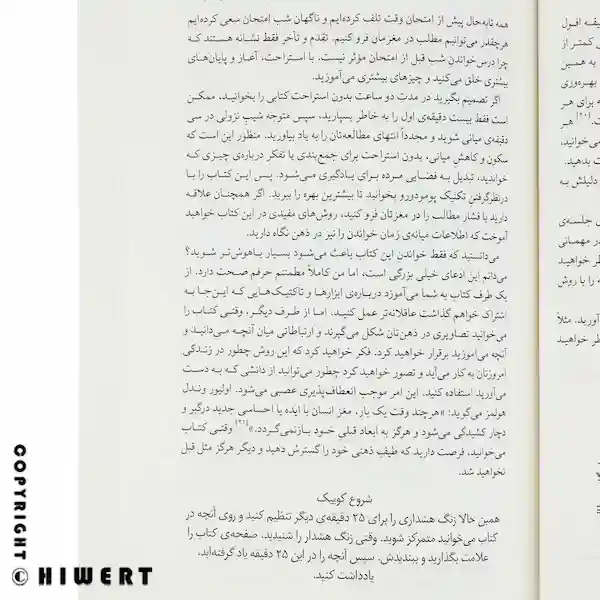 همه تابه‌حال پیش از امتحان وقت تلف کرده‌ایم و ناگهان شب امتحان سعی کرده‌ایم
هرچقدر می‌توانیم مطلب در مغزمان فرو کنیم. تقدم و تأخر فقط نشانه هستند که
چرا درس‌خواندن شب قبل از امتحان مؤثر نیست. با استراحت، آغاز و پایان‌های
بیشتری خلق می‌کنید و چیزهای بیشتری می‌آموزید.
اگر تصمیم بگیرید در مدتِ دو ساعت بدون استراحت کتابی را بخوانید، ممکن
است فقط بیست دقیقه‌ی اول را به خاطر بسپارید، سپس متوجه شیبِ نزولی در سی
دقیقه‌ی میانی شوید و مجدداً انتهای مطالعه‌تان را به یاد بیاورید. منظور این است که
سکون و کاهش میانی، بدون استراحت برای جمع‌بندی یا تفکر درباره‌ی چیزی که
خواندید، تبدیل به فضایی مرده برای یادگیری می‌شود. پس این کتاب را با
درنظرگرفتن تکنیک پومودورو بخوانید تا بیشترین بهره را ببرید. اگر همچنان علاقه
دارید با فشار مطالب را در مغزتان فرو کنید، روش‌های مفیدی در این کتاب خواهید
آموخت که اطلاعات میانه‌ی زمان خواندن را نیز در ذهن نگاه دارید.
می‌دانستید که فقط خواندن این کتاب باعث می‌شود بسیار باهوش‌تر شوید؟
می‌دانم این ادعای خیلی بزرگی است، اما من کاملاً مطمئنم حرفم صحت دارد. از
یک طرف کتاب به شما می‌آموزد درباره‌ی ابزارها و تاکتیک‌هایی که این‌جا به
اشتراک خواهم گذاشت عاقلانه‌تر عمل کنید. اما از طرف دیگر، وقتی کتاب را
می‌خوانید تصاویری در ذهن‌تان شکل می‌گیرند و ارتباطاتی میان آنچه می‌دانید و
آنچه می‌آموزید برقرار خواهید کرد. فکر خواهید کرد که این روش چطور در زندگی
امروزتان به کار می‌آید و تصور خواهید کرد چطور می‌توانید از دانشی که به دست
می‌آورید استفاده کنید. این امر موجب انعطاف‌پذیری عصبی می‌شود. اولیور وندل
هولمز می‌گوید: «هرچند وقت یک بار، مغز انسان با ایده یا احساسی جدید درگیر و
دچار کشیدگی می‌شود و هرگز به ابعاد قبلی خود بازنمی‌گردد.»[۲۱] وقتی کتاب
می‌خوانید، فرصت دارید که طیف ذهنی خود را گسترش دهید و دیگر هرگز مثل قبل
نخواهید شد.
شروع کوییک
همین حالا زنگ هشداری را برای ۲۵ دقیقه‌ی دیگر تنظیم کنید و روی آنچه در
کتاب می‌خوانید متمرکز شوید. وقتی زنگ هشدار را شنیدید، صفحه‌ی کتاب را
علامت بگذارید و ببندیدش. سپس آنچه را در این ۲۵ دقیقه یاد گرفته‌اید،
یادداشت کنید.
یقه افول
کمتر از
به همین
بهره‌وری
ه برای هر
ت.[۲۰] هر
می‌خوانید،
ت بدهید.
دلیلش به
ل جلسه‌ی
در مهمانی
طر خواهید
ه را با روش
آورید. مثلاً
طر خواهید
COPYRIGHT
© HIWERT